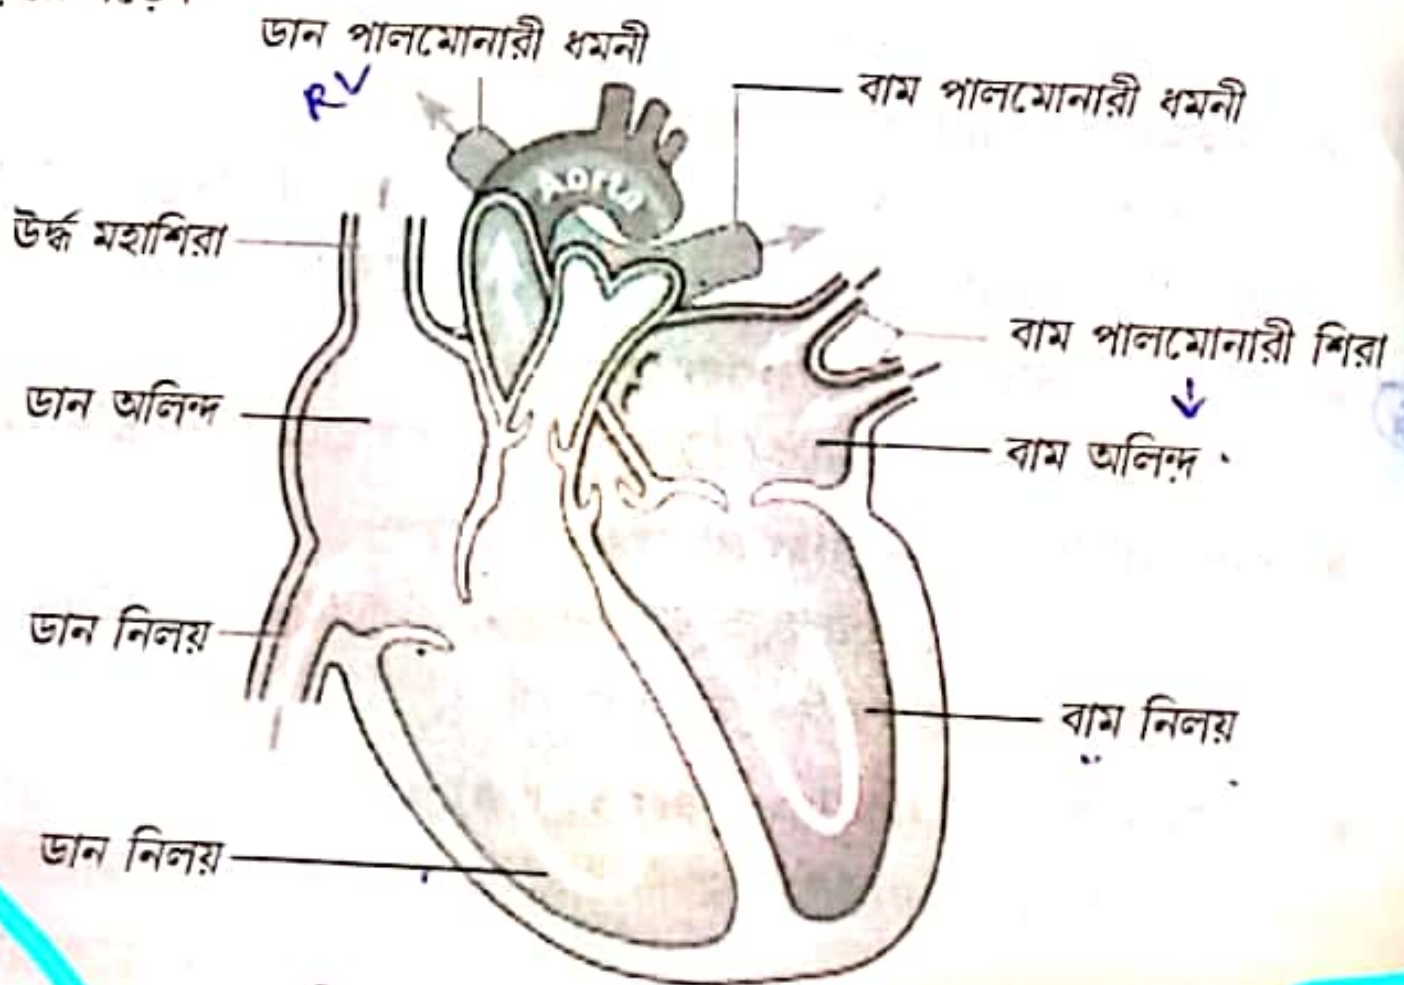 ডান পালমোনারী ধমনী
RV
বাম পালমোনারী ধমনী
Aorta
উর্দ্ধ মহাশিরা
বাম পালমোনারী শিরা
ডান অলিন্দ
বাম অলিন্দ
ডান নিলয়
বাম নিলয়
ডান নিলয়